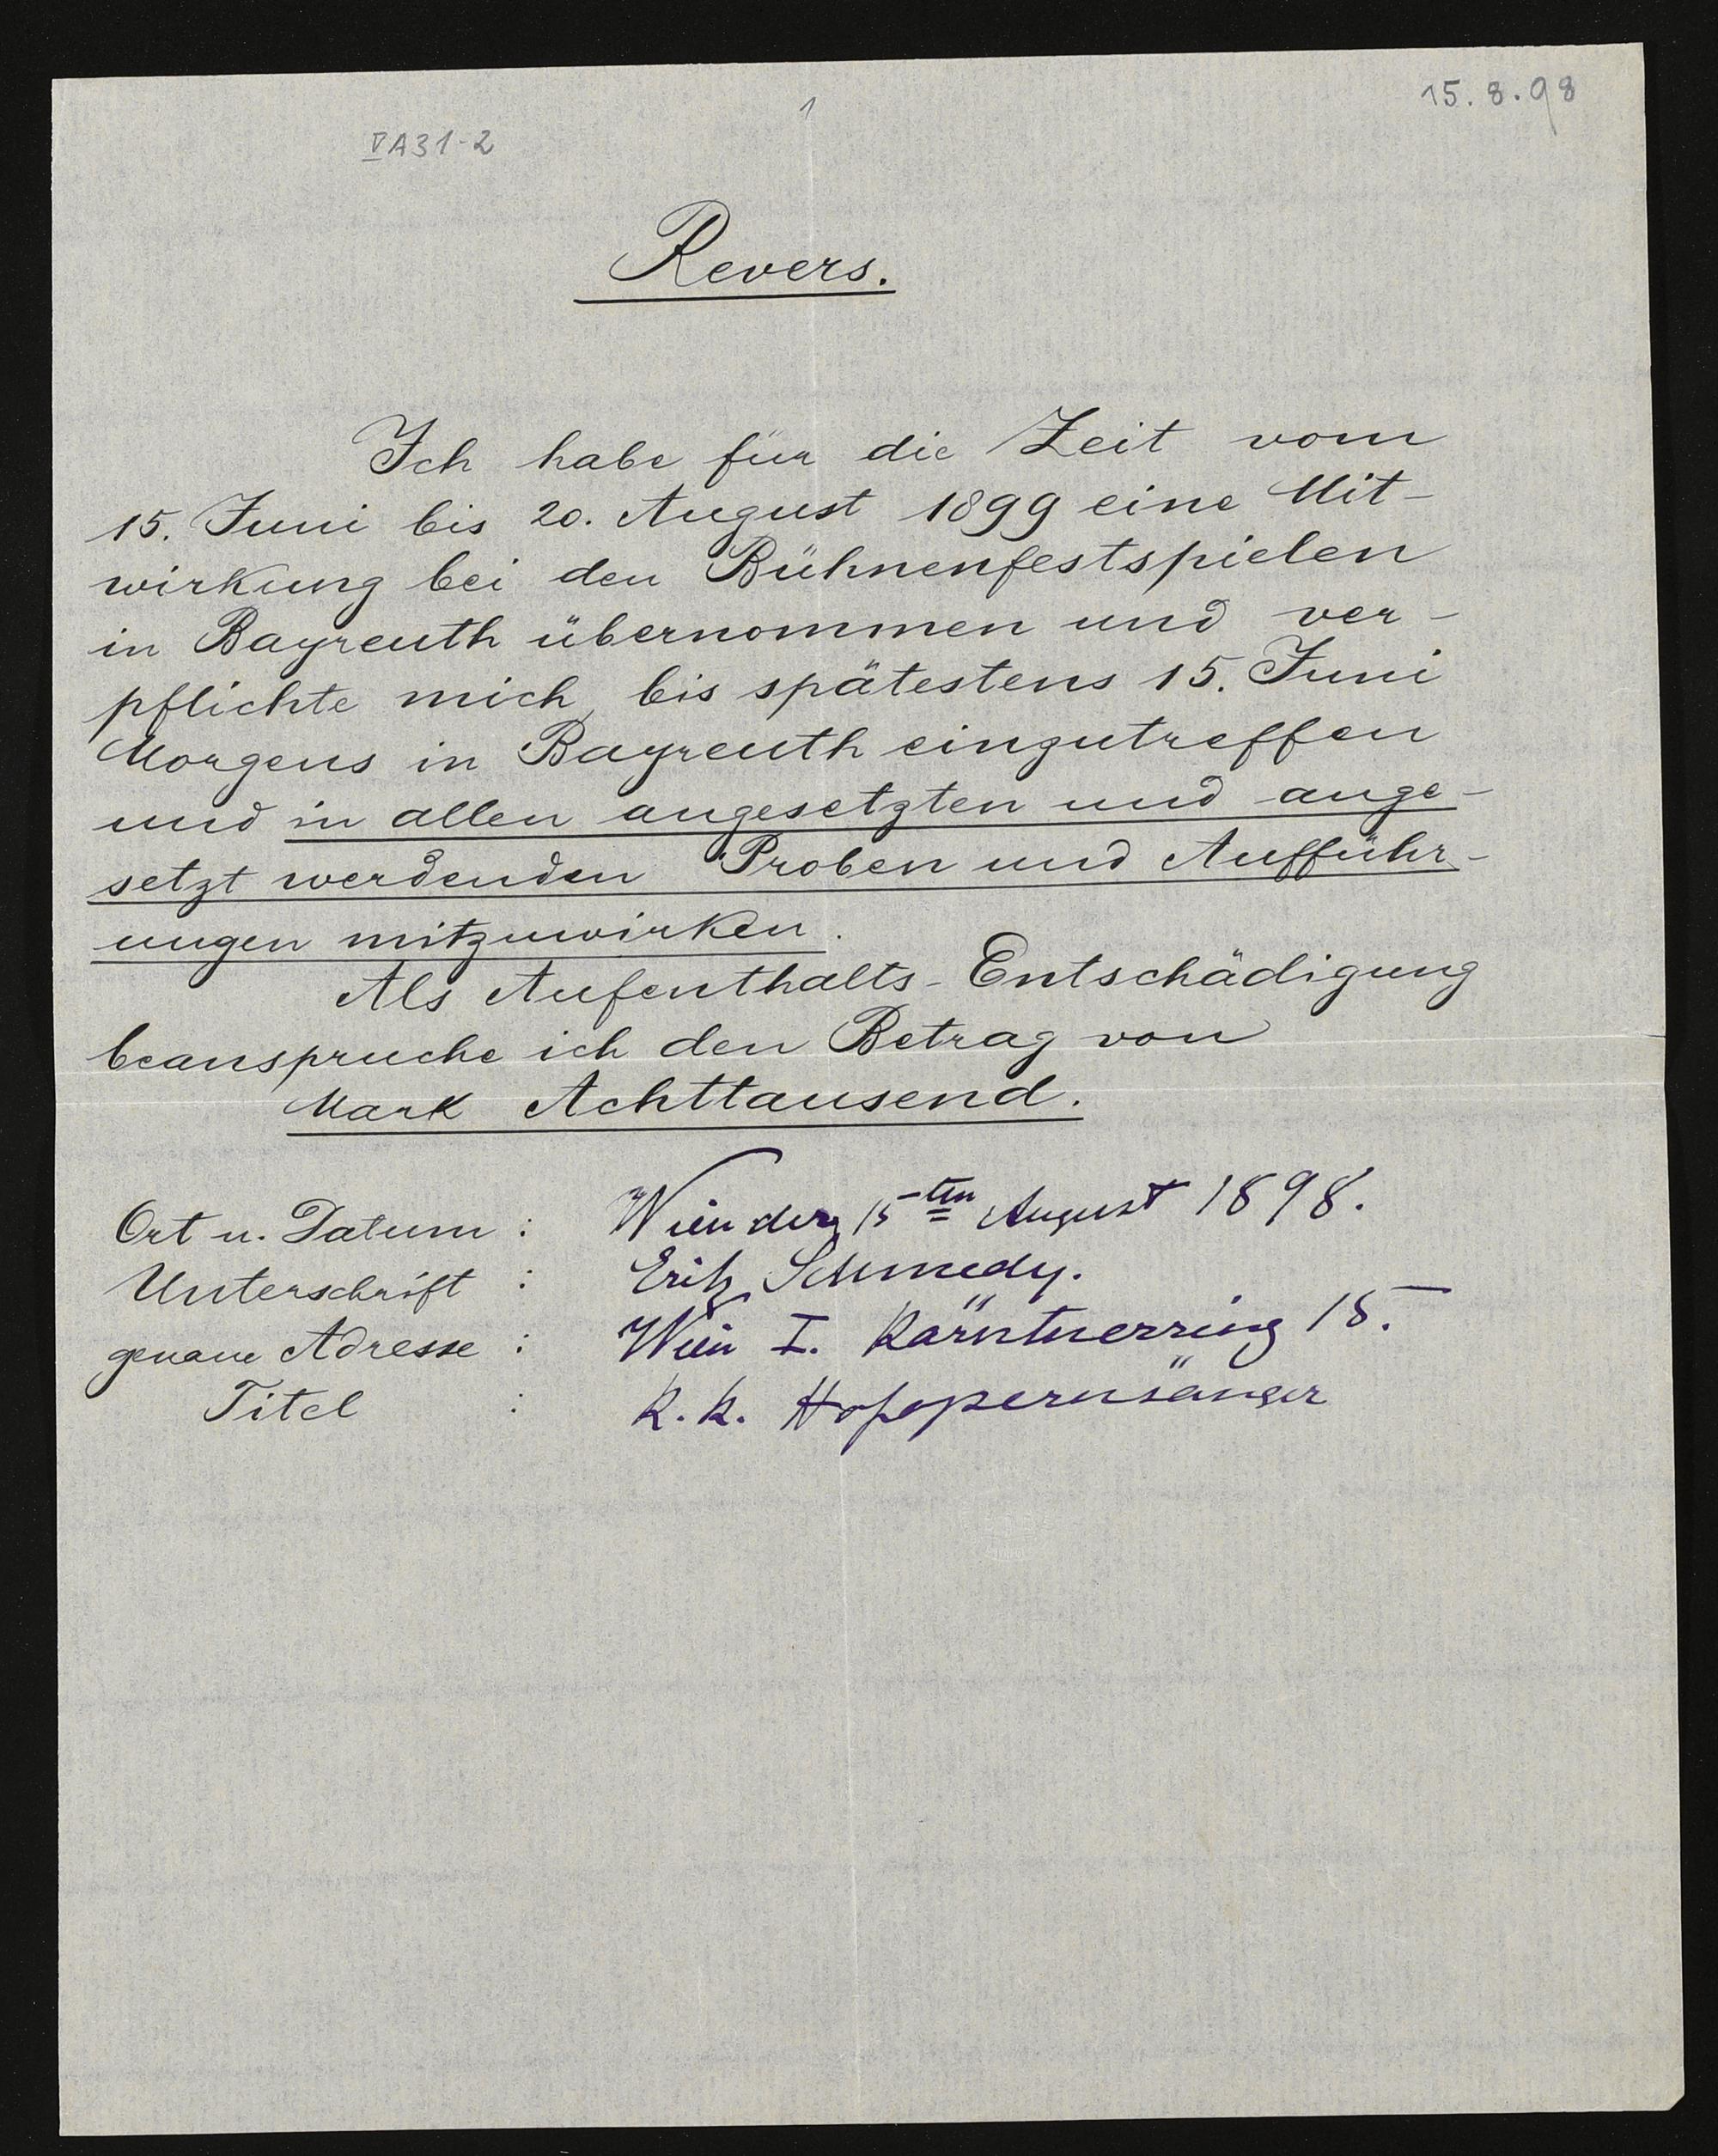 15.8.98
1
V A 31-2
Revers.
Ich habe für die Zeit vom
15. Juni bis 20. August 1899 eine Mit-
wirkung bei den Bühnenfestspielen
in Bayreuth übernommen und ver-
pflichte mich, bis spätestens 15. Juni
Morgens in Bayreuth einzutreffen
und in allen angesetzten und ange-
setzt werdenden Proben und Aufführ-
ungen mitzuwirken.
Als Aufenthalts-Entschädigung
beanspruche ich den Betrag von
Mark Achttausend.
Ort u. Datum : Wien den 15ten August 1898.
Unterschrift : Erik Schmedes.
genaue Adresse : Wien I. Kärntnerring 15.
Titel : K.K. Hofopernsänger